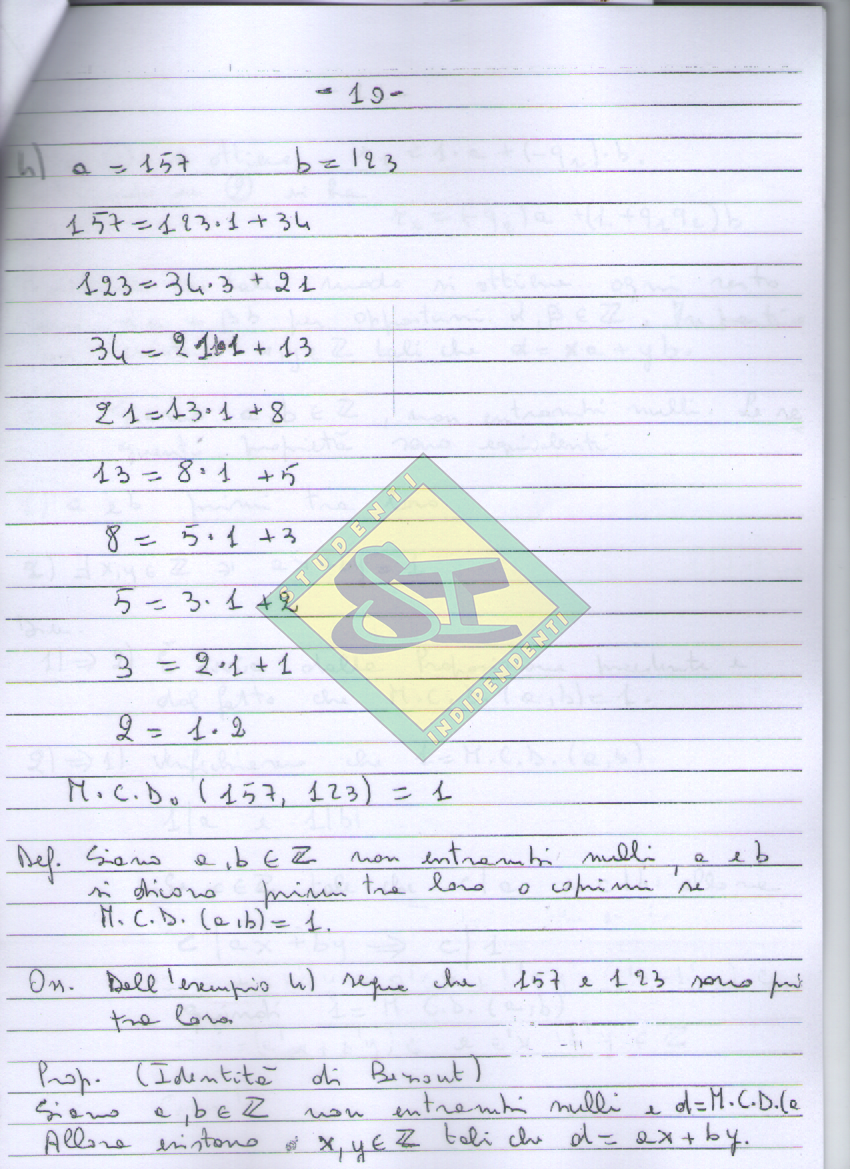 - 19 -
h) a = 157 b = 123
157 = 123·1 + 34
123 = 34·3 + 21
34 = 21·1 + 13
21 = 13·1 + 8
13 = 8·1 + 5
8 = 5·1 + 3
5 = 3·1 + 2
3 = 2·1 + 1
2 = 1·2
M.C.D. (157, 123) = 1
Def. Siano a, b ∈ ℤ non entrambi nulli, a e b
si dicono primi tra loro o coprimi se
M.C.D. (a, b) = 1.
Oss. Dall'esempio h) segue che 157 e 123 sono pri
tra loro
Prop. (Identità di Bezout)
Siano a, b ∈ ℤ non entrambi nulli e d = M.C.D.(a
Allora esistono x, y ∈ ℤ tali che d = ax + by.
STUDENTI
SI
INDIPENDENTI